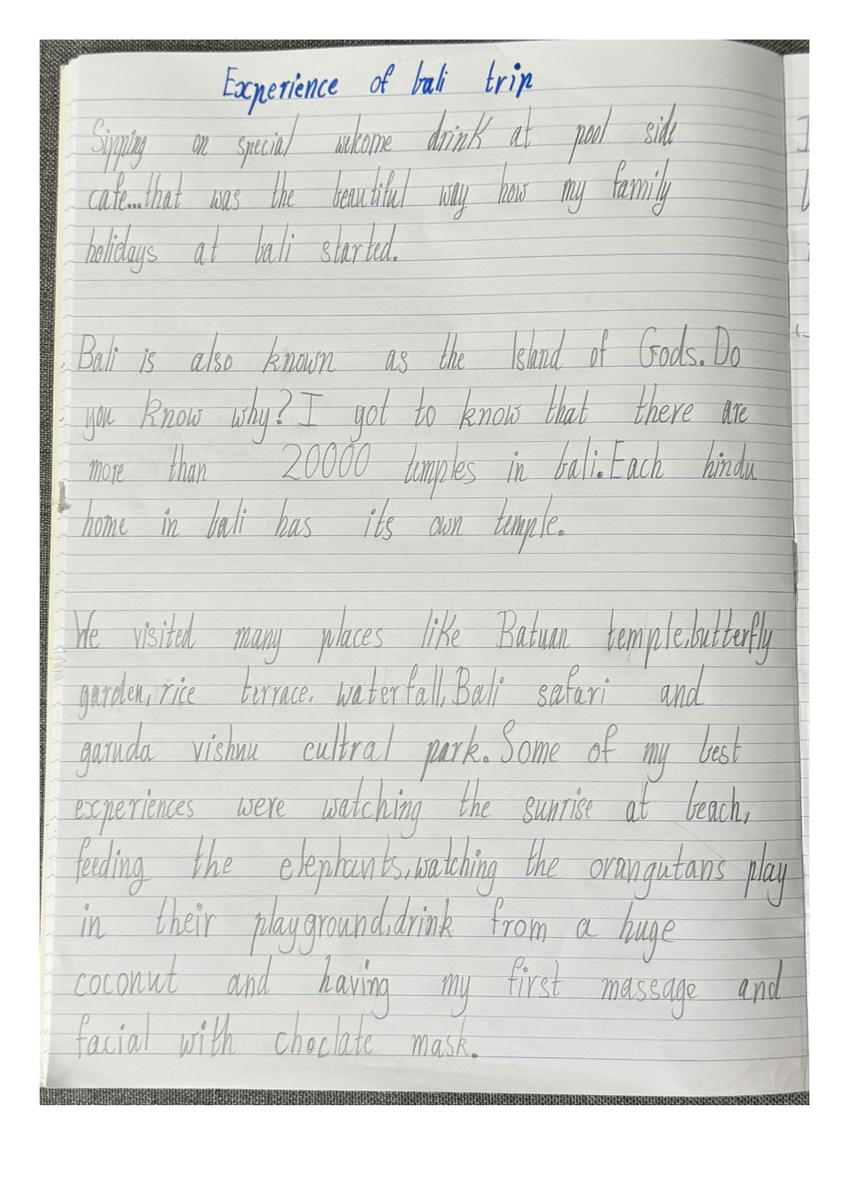 Experience of bali trip
Sipping on special welcome drink at pool side
cafe...that was the beautiful way how my family
holidays at bali started.
Bali is also known as the Island of Gods. Do
you know why? I got to know that there are
more than 20000 temples in bali. Each hindu
home in bali has its own temple.
We visited many places like Batuan temple, butterfly
garden, rice terrace, waterfall, Bali safari and
garuda vishnu cultral park. Some of my best
experiences were watching the sunrise at beach,
feeding the elephants, watching the orangutans play
in their playground, drink from a huge
coconut and having my first massage and
facial with choclate mask.